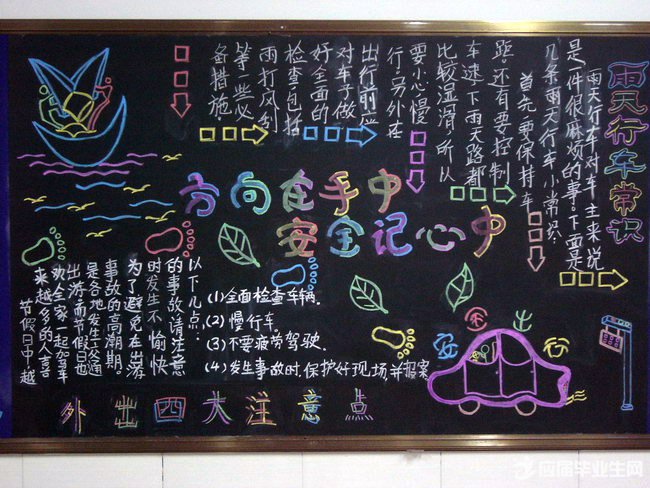 雨天行车常识
雨天行车对车主来说
是一件很麻烦的事,下面是
几条雨天行车小常识
首先,要保持车
距还有要控制
车速,下雨天路都
比较湿滑,所以
要小心慢
行,另外在
出行前应
对车子做
好全面的
检查,包括
雨打风刮
等一些必
备措施
方向在手中
安全记心中
节假日中越
来越多的人喜
欢全家一起驾车
出游,而节假日也
是各地发生交通
事故的高潮期。
为了避免在出游
时发生不愉快
的事故请注意
以下几点:
(1)全面检查车辆.
(2)慢行车.
(3)不要疲劳驾驶.
(4)发生事故时,保护好现场,并报案
安全出行
外出四大注意点
应届毕业生网